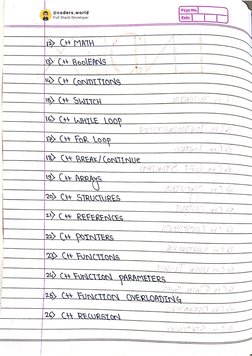 @coders.world
Full Stack Developer
Page No.
Date
12> C++ MATH
13> C++ BOOLEANS
14> C++ CONDITIONS
15> C++ SWITCH
16> C++ WHILE LOOP
17> C++ FOR LOOP
18> C++ BREAK/CONTINUE
19> C++ ARRAYS
20> C++ STRUCTURES
21> C++ REFERENCES
22> C++ POINTERS
23> C++ FUNCTIONS
24> C++ FUNCTION PARAMETERS
25> C++ FUNCTION OVERLOADING
26> C++ RECURSION